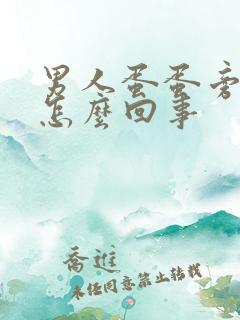 男人蛋蛋旁
怎麼回事
喬進
未经同意禁止转载